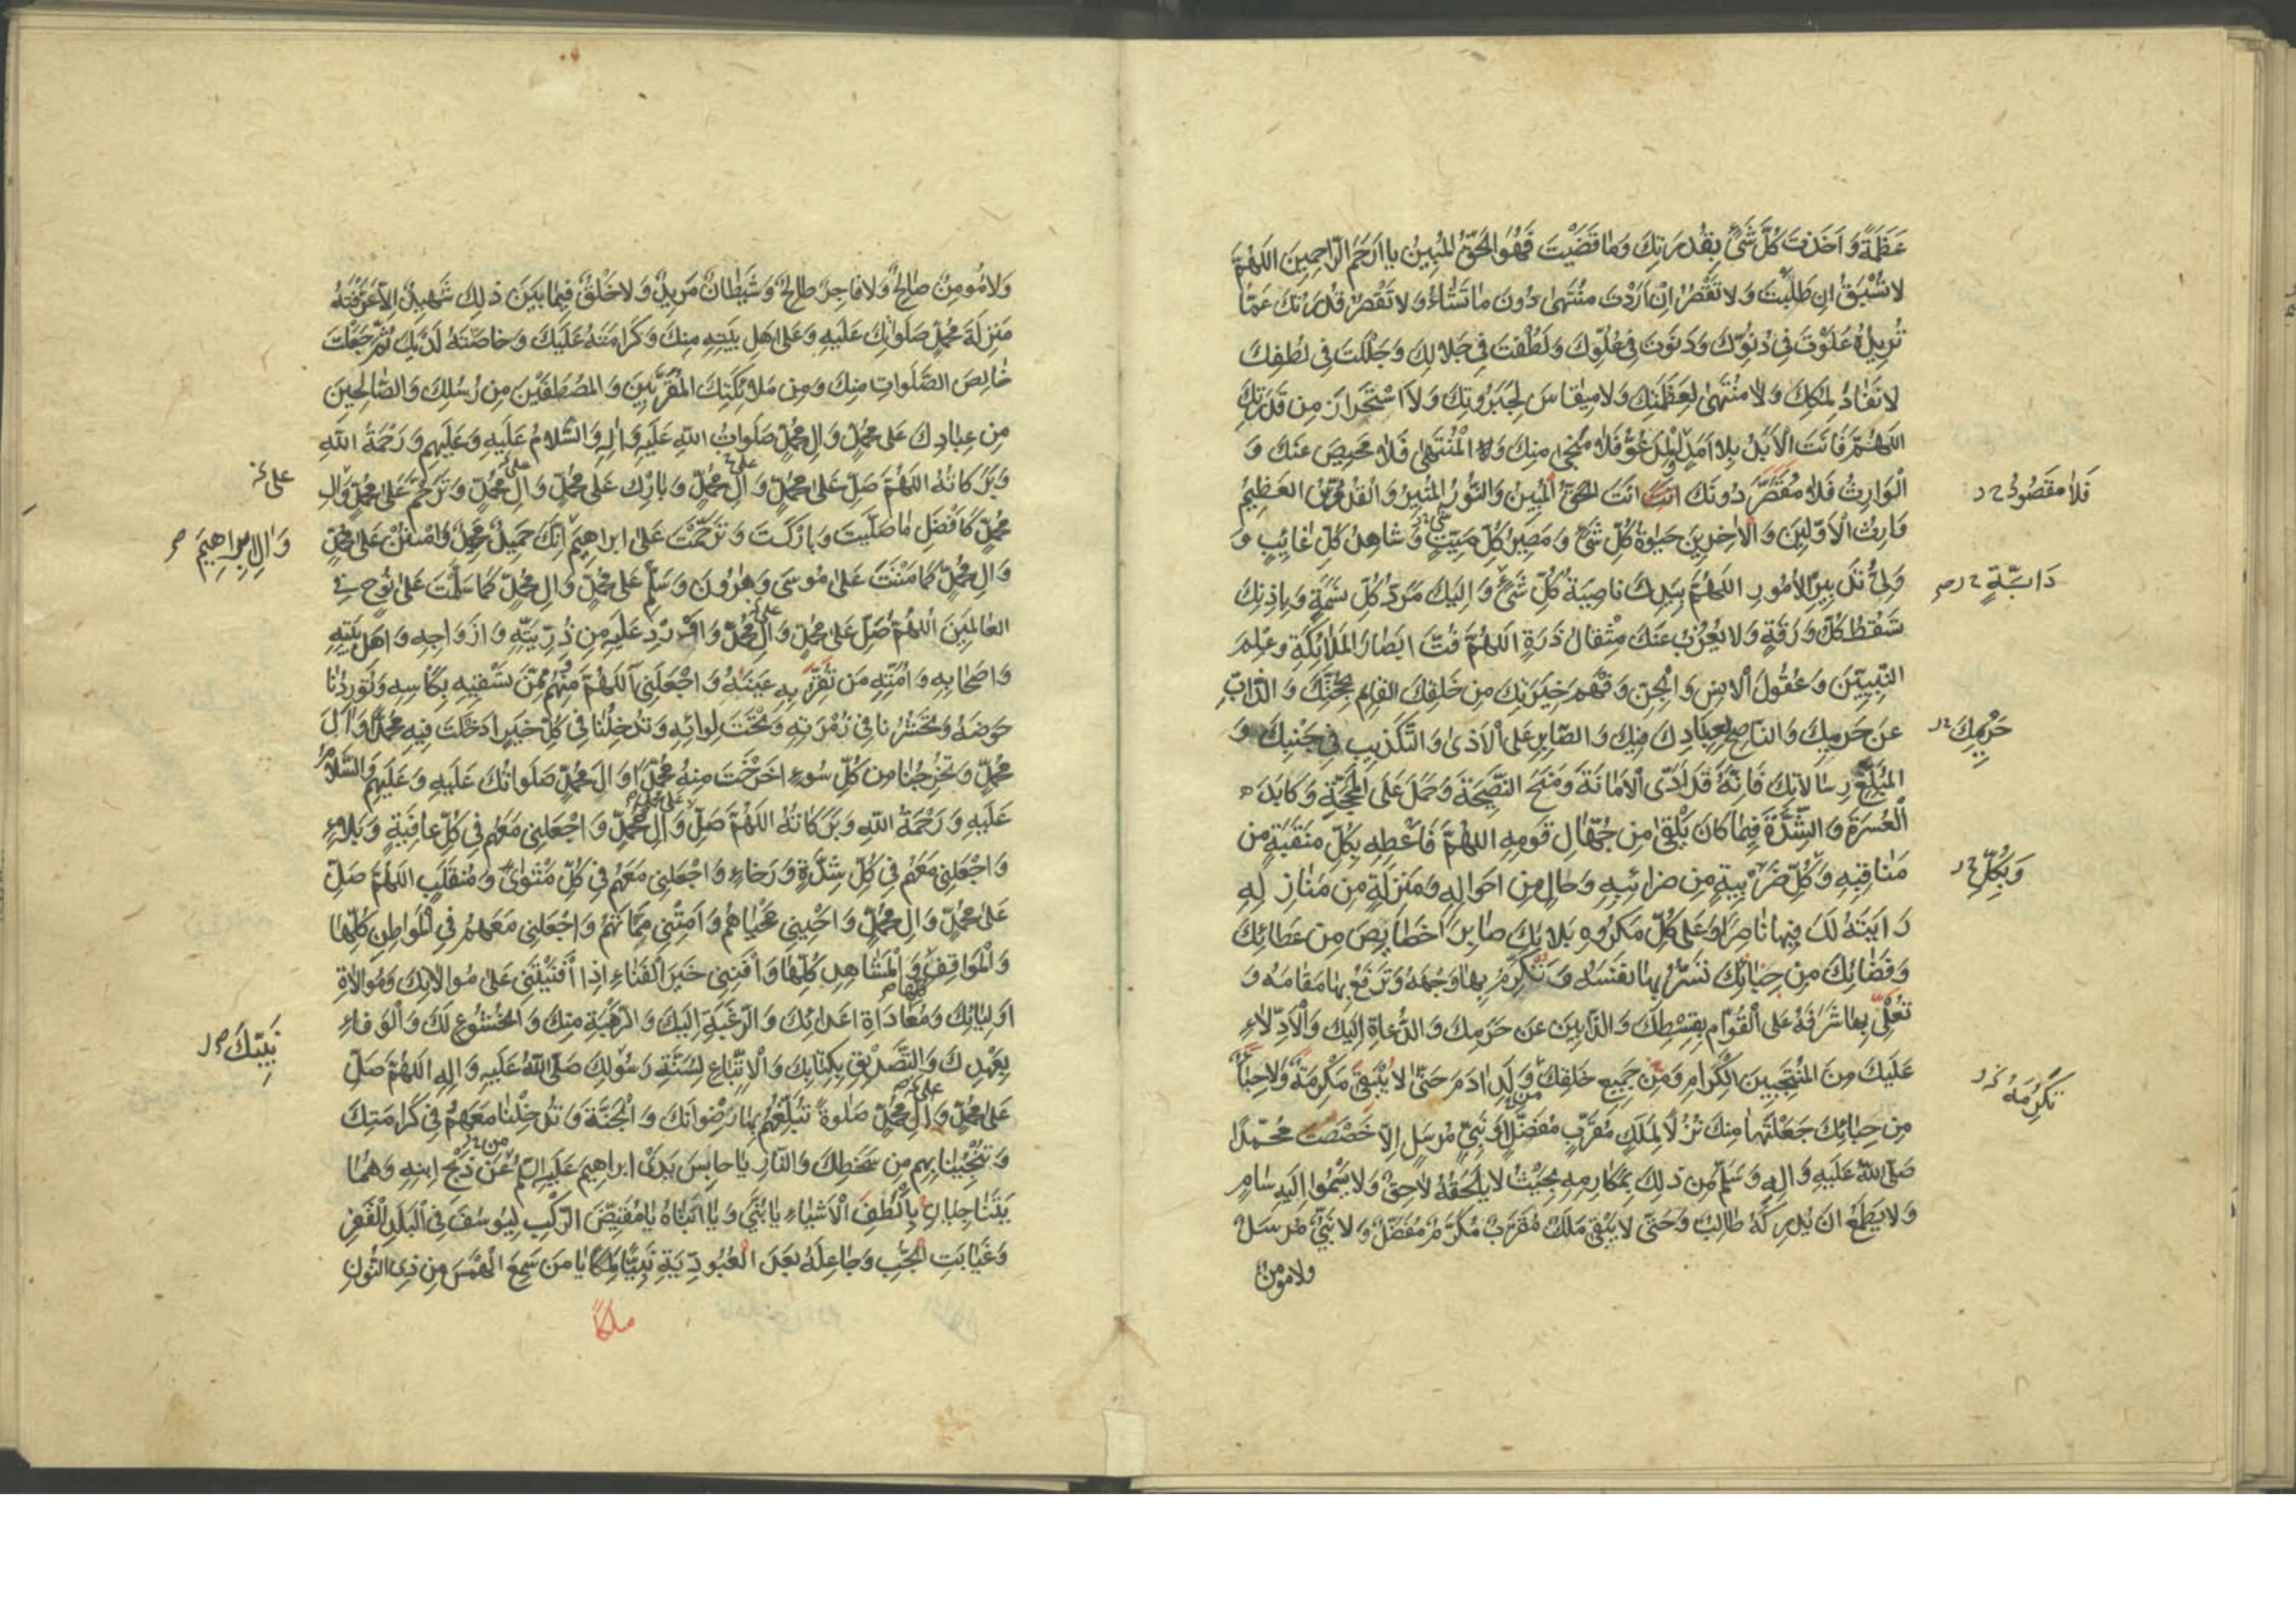 عَظَمَةً وَاَخَذْتَ كُلَّ شَیْءٍ بِقُدْرَتِكَ وَمَا قَضَيْتَ فَهُوَ الحَقُّ المُبِينُ يا اَرْحَمَ الرّاحِمِينَ اَللهُمَّ
لا تُسْبَقُ اِن طَلَبْتَ وَلا تَقْصُرُ اِنْ اَرَدْتَ مُنْتَهىٰ دُونَ مَا تَشَاءُ وَلا تَقْصُرُ قُدْرَتُكَ عَمّا
تُرِيدُ عَلَوْتَ فِی دُنُوِّكَ وَدَنَوْتَ فِی عُلُوِّكَ وَلَطُفْتَ فِی جَلَالِكَ وَجَلَلْتَ فِی لُطْفِكَ
لا نَفَادَ لِمُلْكِكَ وَلا مُنْتَهىٰ لِعَظَمَتِكَ وَلا مِقْيَاسَ لِجَبَرُوتِكَ وَلا اسْتِحْرَازَ مِن قُدْرَتِكَ
اللهُمَّ فَاَنْتَ الْاَبَدُ بِلا اَمَدٍ وَالْمَدْعُوُّ فَلا مَنْجٰى مِنكَ وَ الْمُنْتَهىٰ فَلا مَحِيصَ عَنكَ وَ
الْوَارِثُ فَلا مُقَصِّرَ دُونَكَ اَنْتَ الحَقُّ الْمُبِينُ وَالنُّورُ المُنِيرُ وَالقُدُّوسُ العَظِيمُ
فَلَا مَقْصُودُ
وَارِثُ الْاَوَّلِينَ وَالْاٰخِرِينَ حَيٰوةُ كُلِّ شَیْءٍ وَمَصِيرُ كُلِّ مَيِّتٍ وَشَاهِدُ كُلِّ غَائِبٍ وَ
وَلِیُّ تَدْبِيرِ الاُمُورِ اللهُمَّ بِيَدِكَ نَاصِيَةُ كُلِّ شَیْءٍ وَاِلَيْكَ مَرَدُّ كُلِّ نَسَمَةٍ وَبِاِذْنِكَ
دَابَّةٍ
تَسْقُطُ كُلُّ وَرَقَةٍ وَلا يَعْزُبُ عَنْكَ مِثْقَالُ ذَرَّةٍ اَللهُمَّ فُتَّ اَبْصَارَ المَلَائِكَةِ وَعِلْمَ
النَّبِيِّينَ وَعُقُولَ الْاِنْسِ وَالْجِنِّ وَفَهْمَ خِيَرَتِكَ مِن خَلْقِكَ القَائِمِ بِحُجَّتِكَ وَالذَّابِّ
عَن حَرَمِكَ وَالنَّاصِحِ لِعِبَادِكَ فِيكَ وَالصَّابِرِ عَلَى الْاَذىٰ وَالتَّكْذِيبِ فِی جَنْبِكَ وَ
حَرِيمِكَ
المُبَلِّغِ رِسَالَاتِكَ فَاِنَّهُ قَدْ اَدَّى الْاَمَانَةَ وَمَنَحَ النَّصِيحَةَ وَحَمَلَ عَلَى الْمَحَجَّةِ وَكَابَدَ
الْعُسْرَةَ وَالشِّدَّةَ فِيمَا كَانَ يَلْقىٰ مِن جُهَّالِ قَوْمِهِ اللهُمَّ فَاَعْطِهِ بِكُلِّ مَنْقَبَةٍ مِن
مَنَاقِبِهِ وَكُلِّ ضَرِيبَةٍ مِن ضَرَائِبِهِ وَحَالٍ مِن اَحْوَالِهِ وَمَنْزِلَةٍ مِن مَنَازِلِهِ
وَبِكُلِّ
رَاَيْتَهُ لَكَ فِيهَا نَاصِرًا وَعَلىٰ كُلِّ مَكْرُوهِ بَلَائِكَ صَابِرًا خَصَائِصَ مِن عَطَائِكَ
وَفَضَائِلَ مِن حِبَائِكَ تَسُرُّ بِهَا نَفْسَهُ وَتُكَرِّمُ بِهَا وَجْهَهُ وَتَرْفَعُ بِهَا مَقَامَهُ وَ
تُعْلِی بِهَا شَرَفَهُ عَلَى الْقُوَّامِ بِقِسْطِكَ وَالذَّابِّينَ عَن حَرَمِكَ وَالدُّعَاةِ اِلَيْكَ وَالْاَدِلَّاءِ
عَلَيْكَ مِنَ المُنْتَجَبِينَ الْكِرَامِ وَمِن جَمِيعِ خَلْقِكَ مِن وَلَدِ اٰدَمَ حَتّىٰ لا تَبْقىٰ مَكْرُمَةٌ وَلا حِبَاءٌ
تَكْرِمَةٌ
مِن حِبَائِكَ جَعَلْتَهَا مِنكَ نُزُلًا لِمَلَكٍ مُقَرَّبٍ مُفَضَّلٍ اَوْ نَبِیٍّ مُرْسَلٍ اِلّا خَصَصْتَ مُحَمَّدًا
صَلَّى اللّٰهُ عَلَيْهِ وَاٰلِهِ وَسَلَّمَ مِن ذٰلِكَ بِمَكَارِمِهِ بِحَيْثُ لا يَلْحَقُهُ لَاحِقٌ وَلا يَسْمُوا اِلَيْهِ سَامٍ
وَلا يَطْمَعُ اَن يُدْرِكَهُ طَالِبٌ وَحَتّىٰ لا يَبْقىٰ مَلَكٌ مُقَرَّبٌ مُكَرَّمٌ مُفَضَّلٌ وَلا نَبِیٌّ مُرْسَلٌ
ولا مومنٌ
وَلا مُومِنٌ صَالِحٌ وَلا فَاجِرٌ طَالِحٌ وَشَيْطَانٌ مَرِيدٌ وَلا خَلْقٌ فِيمَا بَيْنَ ذٰلِكَ شَهِيدٌ اِلّا عَرَّفْتَهُ
مَنْزِلَةَ مُحَمَّدٍ صَلَوَاتُكَ عَلَيْهِ وَعَلىٰ اَهْلِ بَيْتِهِ مِنكَ وَكَرَامَتَهُ عَلَيْكَ وَخَاصَّتَهُ لَدَيْكَ ثُمَّ جَعَلْتَ
خَالِصَ الصَّلَوَاتِ مِنكَ وَمِن مَلَائِكَتِكَ المُقَرَّبِينَ وَالمُصْطَفَيْنَ مِن رُسُلِكَ وَالصَّالِحِينَ
مِن عِبَادِكَ عَلىٰ مُحَمَّدٍ وَاٰلِ مُحَمَّدٍ صَلَوَاتُ اللّٰهِ عَلَيْهِ وَاٰلِهِ وَالسَّلَامُ عَلَيْهِ وَعَلَيْهِم وَرَحْمَةُ اللّٰهِ
وَبَرَكَاتُهُ اللهُمَّ صَلِّ عَلىٰ مُحَمَّدٍ وَاٰلِ مُحَمَّدٍ وَبَارِكْ عَلىٰ مُحَمَّدٍ وَاٰلِ مُحَمَّدٍ وَتَرَحَّمْ عَلىٰ مُحَمَّدٍ وَاٰلِ
على
مُحَمَّدٍ كَاَفْضَلِ مَا صَلَّيْتَ وَبَارَكْتَ وَتَرَحَّمْتَ عَلىٰ اِبْرَاهِيمَ اِنَّكَ حَمِيدٌ مَجِيدٌ وَامْنُنْ عَلىٰ مُحَمَّدٍ
وَاٰلِ اِبْرَاهِيمَ
وَاٰلِ مُحَمَّدٍ كَمَا مَنَنْتَ عَلىٰ مُوسىٰ وَهٰرُونَ وَسَلِّمْ عَلىٰ مُحَمَّدٍ وَاٰلِ مُحَمَّدٍ كَمَا سَلَّمْتَ عَلىٰ نُوحٍ فِی
العَالَمِينَ اَللهُمَّ صَلِّ عَلىٰ مُحَمَّدٍ وَاٰلِ مُحَمَّدٍ وَاَوْرِدْ عَلَيْهِ مِن ذُرِّيَّتِهِ وَاَزْوَاجِهِ وَاَهْلِ بَيْتِهِ
وَاَصْحَابِهِ وَاُمَّتِهِ مَن تُقِرُّ بِهِ عَيْنَهُ وَاجْعَلْنِی اللهُمَّ مِنْهُم وَمِمَّن تَسْقِيهِ بِكَاْسِهِ وَتُورِدُنَا
حَوْضَهُ وَتَحْشُرُنَا فِی زُمْرَتِهِ وَتَحْتَ لِوَائِهِ وَتُدْخِلُنَا فِی كُلِّ خَيْرٍ اَدْخَلْتَ فِيهِ مُحَمَّدًا وَاٰلَ
مُحَمَّدٍ وَتُخْرِجُنَا مِن كُلِّ سُوءٍ اَخْرَجْتَ مِنهُ مُحَمَّدًا وَاٰلَ مُحَمَّدٍ صَلَوَاتُكَ عَلَيْهِ وَعَلَيْهِم وَالسَّلَامُ
عَلَيْهِ وَرَحْمَةُ اللّٰهِ وَبَرَكَاتُهُ اللهُمَّ صَلِّ وَاٰلِ مُحَمَّدٍ وَاجْعَلْنِی مَعَهُم فِی كُلِّ عَافِيَةٍ وَبَلَاءٍ
وَاجْعَلْنِی مَعَهُم فِی كُلِّ شِدَّةٍ وَرَخَاءٍ وَاجْعَلْنِی مَعَهُم فِی كُلِّ مَثْوًى وَمُنْقَلَبٍ اللهُمَّ صَلِّ
عَلىٰ مُحَمَّدٍ وَاٰلِ مُحَمَّدٍ وَاَحْيِنِی مَحْيَاهُم وَاَمِتْنِی مَمَاتَهُم وَاجْعَلْنِی مَعَهُم فِی الْمَوَاطِنِ كُلِّهَا
وَالْمَوَاقِفِ وَالْمَشَاهِدِ كُلِّهَا وَاَفْنِنِی خَيْرَ الْفَنَاءِ اِذَا اَفْنَيْتَنِی عَلىٰ مُوَالَاتِكَ وَمُوَالَاةِ
اَوْلِيَائِكَ وَمُعَادَاةِ اَعْدَائِكَ وَالرَّغْبَةِ اِلَيْكَ وَالرَّهْبَةِ مِنكَ وَالْخُشُوعِ لَكَ وَالْوَفَاءِ
بِعَهْدِكَ وَالتَّصْدِيقِ بِكِتَابِكَ وَالْاِتِّبَاعِ لِسُنَّةِ رَسُولِكَ صَلَّى اللّٰهُ عَلَيْهِ وَاٰلِهِ اللهُمَّ صَلِّ
نَبِيِّكَ
عَلىٰ مُحَمَّدٍ وَاٰلِ مُحَمَّدٍ صَلٰوةً تُبَلِّغُهُم بِهَا رِضْوَانَكَ وَالْجَنَّةَ وَتُدْخِلُنَا مَعَهُم فِی كَرَامَتِكَ
وَتُنْجِينَا بِهِم مِن سَخَطِكَ وَالنَّارِ يَا حَابِسَ يَدَیْ اِبْرَاهِيمَ عَلَيْهِ السَّلَم عَن ذَبْحِ ابْنِهِ وَهُمَا
يَتَنَاجَيَانِ بِاَلْطَفِ الْاَشْيَاءِ يَا بُنَیَّ وَيَا اَبَتَاهُ يَا مُقَيِّضَ الرَّكْبِ لِيُوسُفَ فِی الْبَلَدِ الْقَفْرِ
وَغَيَابَتِ الْجُبِّ وَجَاعِلَهُ بَعْدَ الْعُبُودِيَّةِ نَبِيًّا مَلِكًا يَا مَن سَمِعَ الْهَمْسَ مِن ذِی النُّونِ
ملكًا